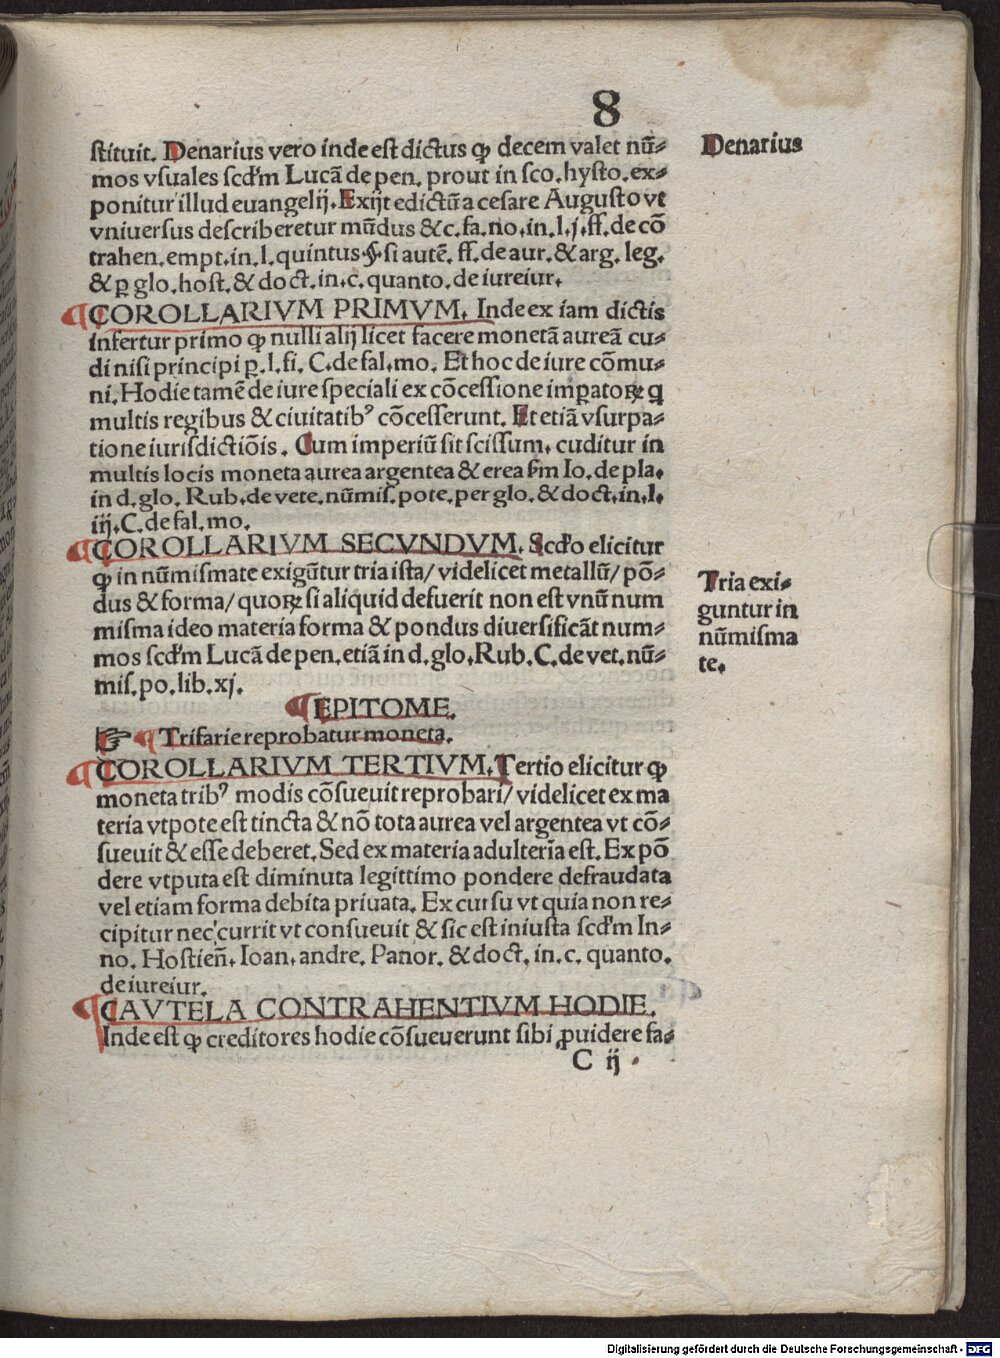 8
stituit. Denarius vero inde est dictus ꝙ decem valet nū⸗
mos vsuales scd'm Lucā de pen. prout in sco. hysto. ex⸗
ponitur illud euangelij. Exijt edictū a cesare Augusto vt
vniuersus describeretur mūdus &c. fa. no. in. l. j. ff. de cō
trahen. empt. in. l. quintus. §. si autē. ff. de aur. & arg. leg.
& ꝑ glo. host. & doct. in. c. quanto. de iureiur.
Denarius
¶COROLLARIVM PRIMVM. Inde ex iam dictis
infertur primo ꝙ nulli alij licet facere monetā aureā cu⸗
di nisi principi ꝑ. l. fi. C. de fal. mo. Et hoc de iure cōmu⸗
ni. Hodie tamē de iure speciali ex cōcessione imꝑatoꝝ ꝗ
multis regibus & ciuitatibꝰ cōcesserunt. Et etiā vsurpa⸗
tione iurisdictiōis. Cum imperiū sit scissum. cuditur in
multis locis moneta aurea argentea & erea ẜm Io. de pla.
in d. glo. Rub. de vete. nūmis. pote. per glo. & doct. in. l.
iij. C. de fal. mo.
¶COROLLARIVM SECVNDVM. Scd'o elicitur
ꝙ in nūmismate exigūtur tria ista/ videlicet metallū/ pō⸗
dus & forma/ quoꝝ si aliquid defuerit non est vnū num
misma ideo materia forma & pondus diuersificāt num⸗
mos scd'm Lucā de pen. etiā in d. glo. Rub. C. de vet. nū⸗
mis. po. lib. xj.
Tria exi⸗
guntur in
nūmisma
te.
¶EPITOME.
☞ ¶Trifarie reprobatur moneta.
¶COROLLARIVM TERTIVM. Tertio elicitur ꝙ
moneta tribꝰ modis cōsueuit reprobari/ videlicet ex ma
teria vtpote est tincta & nō tota aurea vel argentea vt cō⸗
sueuit & esse deberet. Sed ex materia adulteria est. Ex pō
dere vtputa est diminuta legittimo pondere defraudata
vel etiam forma debita priuata. Ex cursu vt quia non re⸗
cipitur nec currit vt consueuit & sic est iniusta scd'm In⸗
no. Hostieñ. Ioan. andre. Panor. & doct. in. c. quanto.
de iureiur.
¶CAVTELA CONTRAHENTIVM HODIE.
Inde est ꝙ creditores hodie cōsueuerunt sibi ꝓuidere fa⸗
C ij
Digitalisierung gefördert durch die Deutsche Forschungsgemeinschaft - DFG